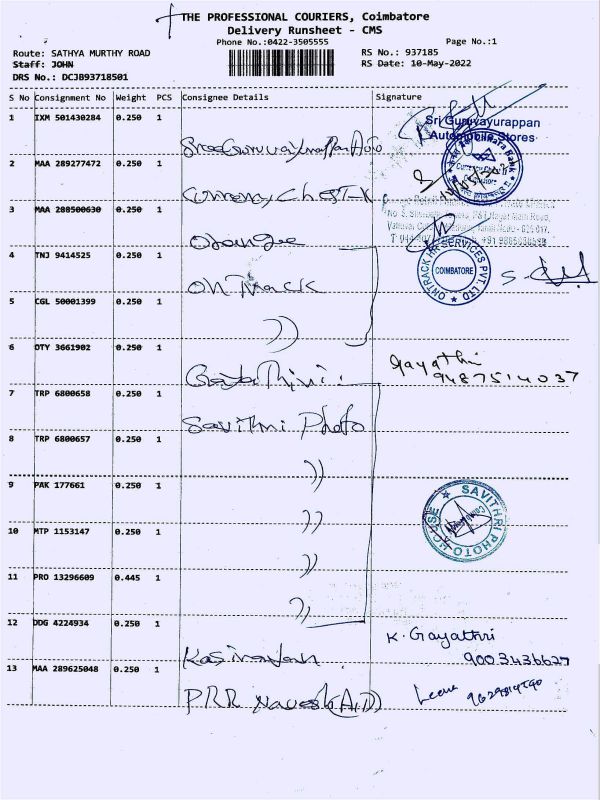 THE PROFESSIONAL COURIERS, Coimbatore
Delivery Runsheet - CMS
Phone No.:0422-3505555
Page No.:1
Route: SATHYA MURTHY ROAD
RS No.: 937185
Staff: JOHN
RS Date: 10-May-2022
DRS No.: DCJB93718501
S No Consignment No Weight PCS Consignee Details Signature
1 IXM 501430284 0.250 1
Sri Guruvayurappan
Automobile Stores
2 MAA 289277472 0.250 1
Currency Chest
3 MAA 288500630 0.250 1
Orange
4 TNJ 9414525 0.250 1
On Track
ONTRACK HR SERVICES PVT. LTD
COIMBATORE
5 CGL 50001399 0.250 1
))
6 DTY 3661902 0.250 1
Gayathri
9487514037
7 TRP 6800658 0.250 1
Savithri Photo
8 TRP 6800657 0.250 1
))
9 PAK 177661 0.250 1
))
SAVITHRI PHOTO HOUSE
10 MTP 1153147 0.250 1
))
11 PRO 13296609 0.445 1
))
12 DDG 4224934 0.250 1
K. Gayathri
9003436627
13 MAA 289625048 0.250 1
PRR
Leena